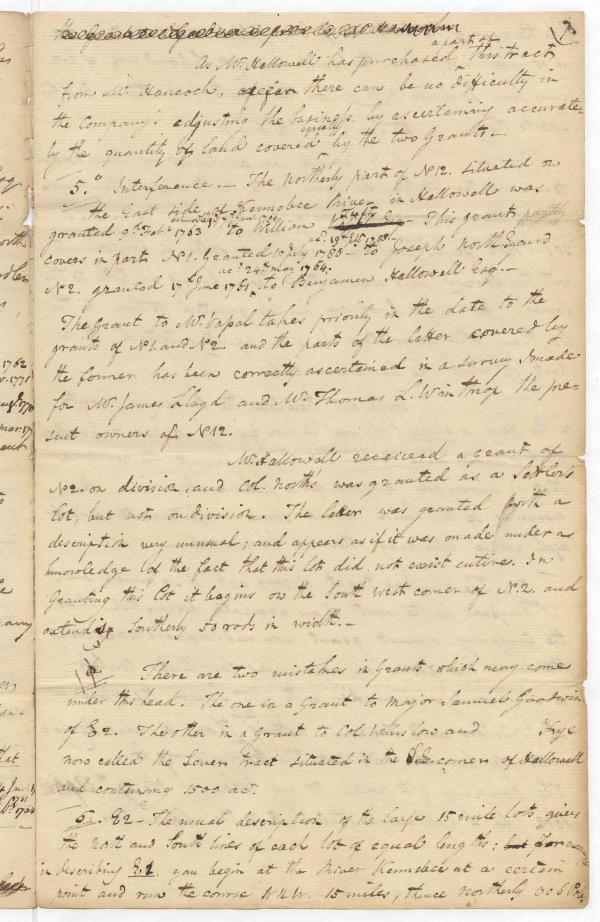 7
a part of
As Mr. Hallowell has purchased this tract
from Mr. Hancock, there can be no difficulty in
the Company's adjusting the business by ascertaining accurate-
equally
ly the quantity of land covered by the two Grants.—
5." Interference.— The Northerly part of No 12. situated on
the East side of Kennebec River in Hallowell was
granted 9th. Feb. 1763 to William This grant partly
acc. 19th. Feb. 1788.—
covers in part No 1. Granted 10 July 1788— to Joseph North Esq. and
acc. 24th. May 1764.
No 2. granted 17th June 1761, to Benjamin Hallowell Esq.—
The Grant to Mr. Vapal takes priority in the date to the
grants of No 1. and No 2 and the parts of the latter covered by
the former has been correctly ascertained in a survey I made
for Mr. James Lloyd and Mr. Thomas L. Winthrop the pre-
sent owners of No 12.
Mr. Hallowell received a grant of
No 2. on division, and Col. North's was granted as a Settlers
lot, but not on division. The latter was granted with a
description very unusual; and appears as if it was made under a
knowledge of the fact that this lot did not exist entire. In
Granting this lot it begins on the South west corner of No 2. and
extends Southerly 50 rods in width.—
There are two mistakes in Grants which may come
under this head. The one in a Grant to Major Samuel Goodwin
of E2. The other in a Grant to Col. Winslow and Frye
now called the Seven tract situated in the corner of Hallowell
and containing 1500 acs.
5. E2— The usual description of the large 15 mile lots gives
the North and South lines of each lot of equal lengths; but for
in describing E.2. you begin at the River Kennebeck at a certain
point and run the course W.N.W. 15 miles, thence northerly 306 Poles